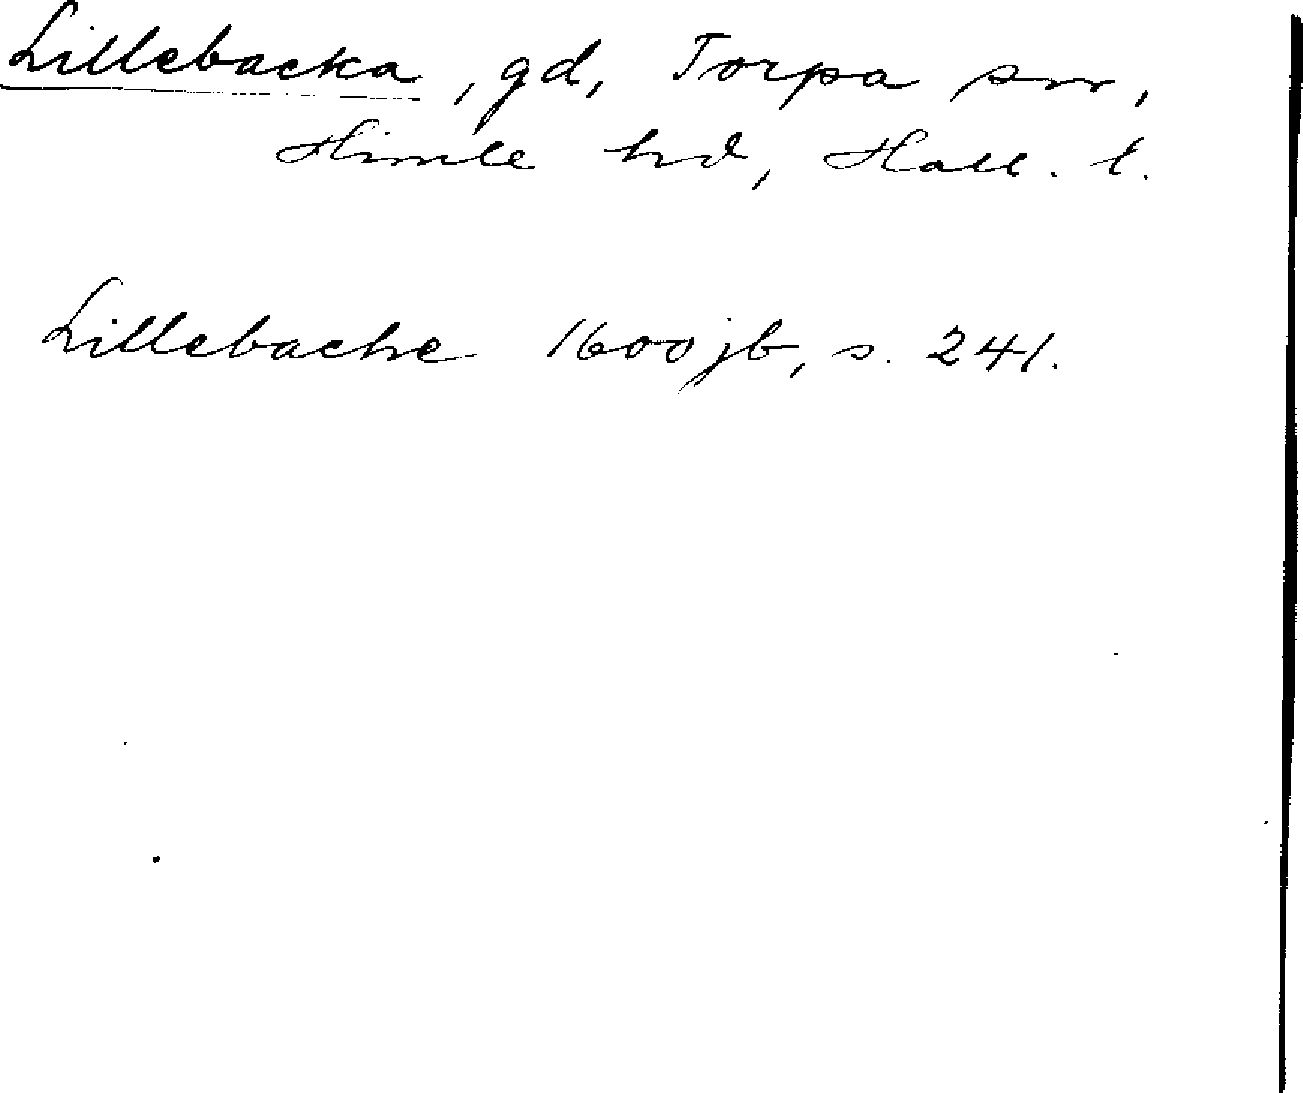 Lillebacka, gd, Torpa sn,
Himle hd, Hall. l.
Lillebache 1600 jb, s. 241.